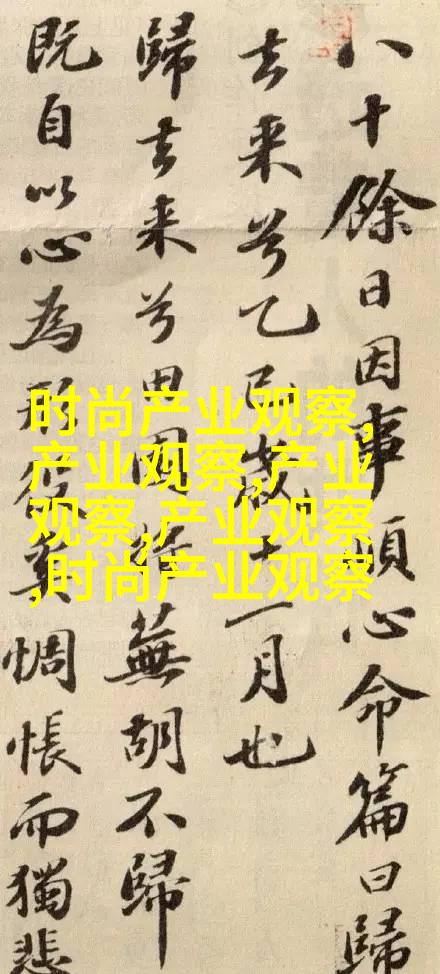 八十餘日因事順心命篇曰歸
去来兮乙巳歲十一月也
歸去来兮田園將蕪胡不歸
既自以心為形役奚惆悵而獨悲
时尚产业观察,
产业观察,产业
观察,产业观察
,时尚产业观察